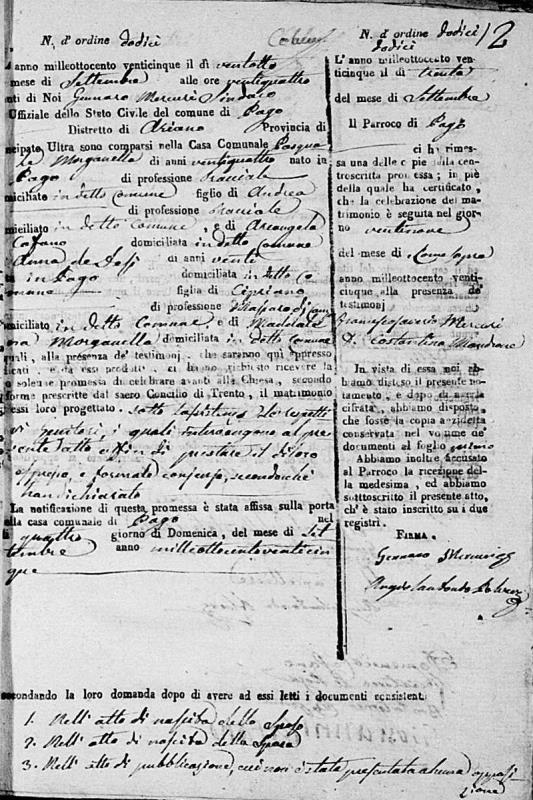 N. d'ordine dodici
L'anno milleottocento venticinque il dì ventotto
mese di Settembre alle ore ventiquattro
nti di Noi Gennaro Mercuri Sindaco
Uffiziale dello Stato Civile del comune di Pago
Distretto di Ariano Provincia di
ncipato Ultra sono comparsi nella Casa Comunale Pasqua
le Morganella di anni ventiquattro nato in
Pago di professione braciale
micihato in detto Comune figlio di Andrea
di professione braciale
miciliato in detto Comune, e di Arcangela
Cafano domiciliata in detto Comune
Anna de di anni venti
ta in Pago domiciliata in detto Co
mune figlia di Cipriano
di professione Massaro di cam
miciliato in detto Comune, e di Maddale
na Morganella domiciliata in detto Comune
quali, alla presenza de' testimonj, che saranno qui appresso
icati, e da essi prodotti, ci hanno richiesto ricevere la
o solenne promessa di celebrare avanti alla Chiesa, secondo
forme prescritte dal sacro Concilio di Trento, il matrimonio
essi loro progettato. sotto
vi genitori, i quali intervengono al pre
sente atto affin di prestare il di loro
espresso, e formato consenso, secondochè
han dichiarato
La notificazione di questa promessa è stata affissa sulla porta
lla casa comunale di Pago nel
quattro giorno di Domenica, del mese di Set
tembre anno milleottocentoventicin
que
econdando la loro domanda dopo di avere ad essi letti i documenti consistenti
1. Nell' atto di nascita dello Sposo
2. Nell' atto di nascita della Sposa
3. Nell' atto di pubblicazione, cui non è stata presentata alcuna opposi
zione
N. d'ordine dodici 12
dodici
L'anno milleottocento venticinque
il dì trenta
del mese di Settembre
Il Parroco di Pago
ci ha rimes-
sa una delle copie della con-
troscritta promessa; in piè
della quale ha certificato,
che la celebrazione del ma-
trimonio è seguita nel gior-
no ventinove
del mese di Come sopra
anno milleottocento venti-
cinque alla presenza de'
testimonj
Francesco Saverio Mercuri
D. Costantino Mandrone
In vista di essa noi ab-
biamo disteso il presente no-
tamento, e dopo di averla
cifrata, abbiamo disposto,
che fosse la copia anzidetta
conservata nel volume de'
documenti al foglio primo
Abbiamo inoltre accusato
al Parroco la ricezione del-
la medesima, ed abbiamo
sottoscritto il presente atto,
ch'è stato inscritto su i due
registri.
FIRMA.
Gennaro Mercuri